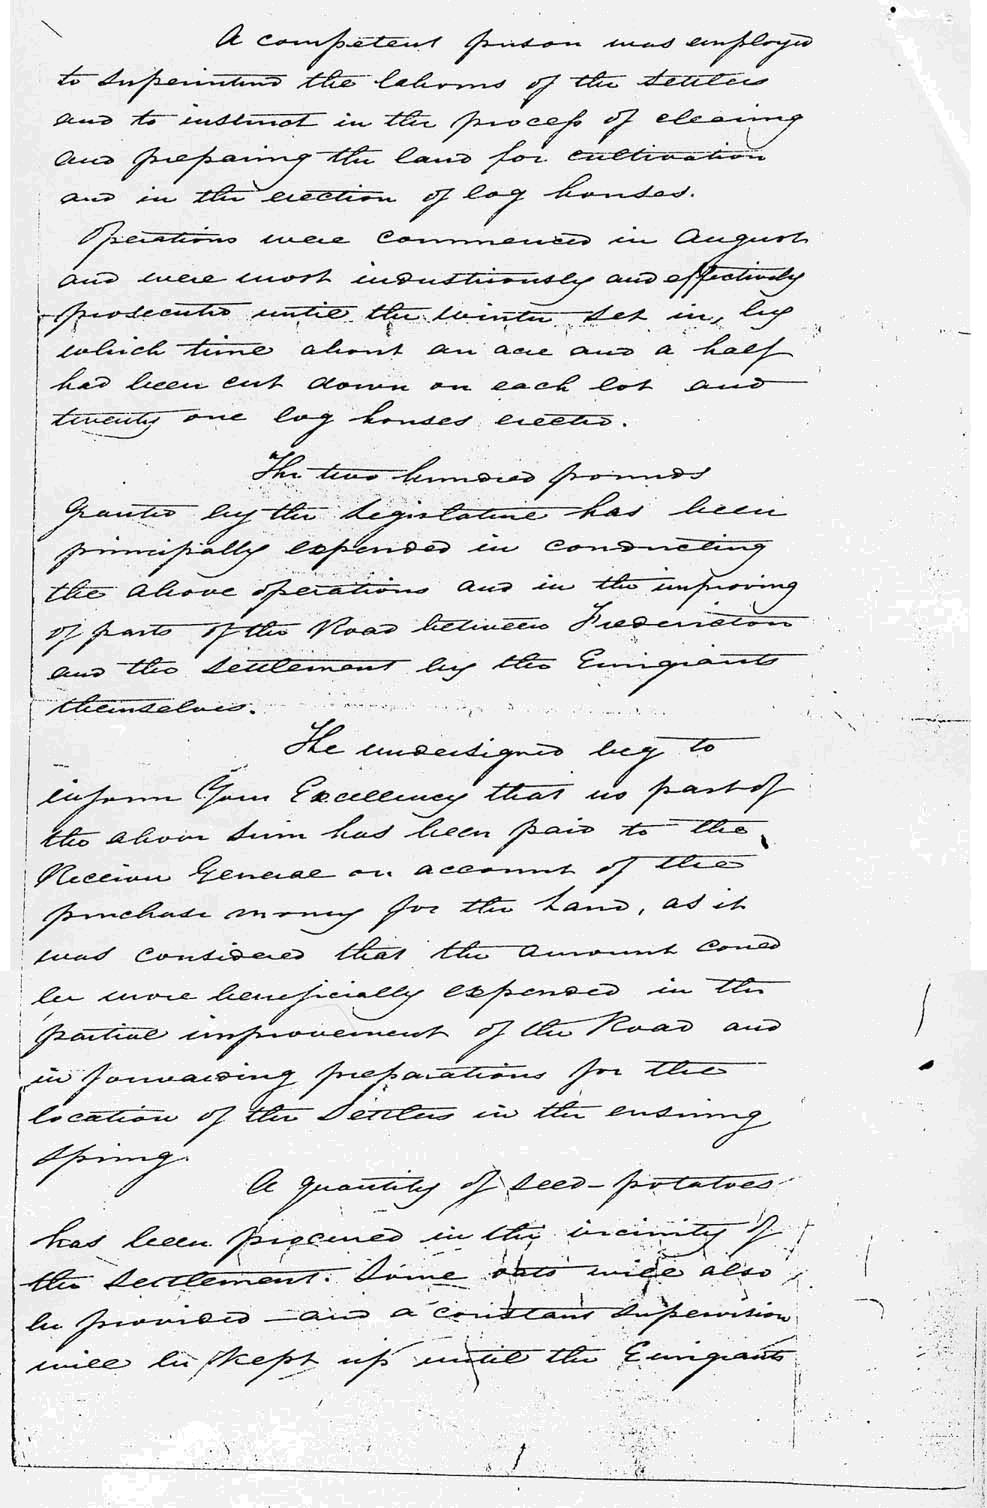 A competent person was employed
to superintend the labours of the Settlers
and to instruct in the process of clearing
and preparing the land for cultivation
and in the erection of log houses.
Operations were commenced in August
and were most industriously and effectively
prosecuted until the winter set in, by
which time about an acre and a half
had been cut down on each lot and
twenty one log houses erected.
The two hundred pounds
Granted by the Legislature has been
principally expended in conducting
the above operations and in the improving
of parts of the Road between Fredericton
and the Settlement by the Emigrants
themselves.
The undersigned beg to
inform Your Excellency that no part of
the above sum has been paid to the
Receiver General on account of the
purchase money for the land, as it
was considered that the amount could
be more beneficially expended in the
partial improvement of the Road and
in forwarding preparations for the
location of the Settlers in the ensuing
Spring.
A quantity of seed-potatoes
has been procured in the vicinity of
the Settlement. Some oats will also
be provided - and a constant supervision
will be kept up until the Emigrants